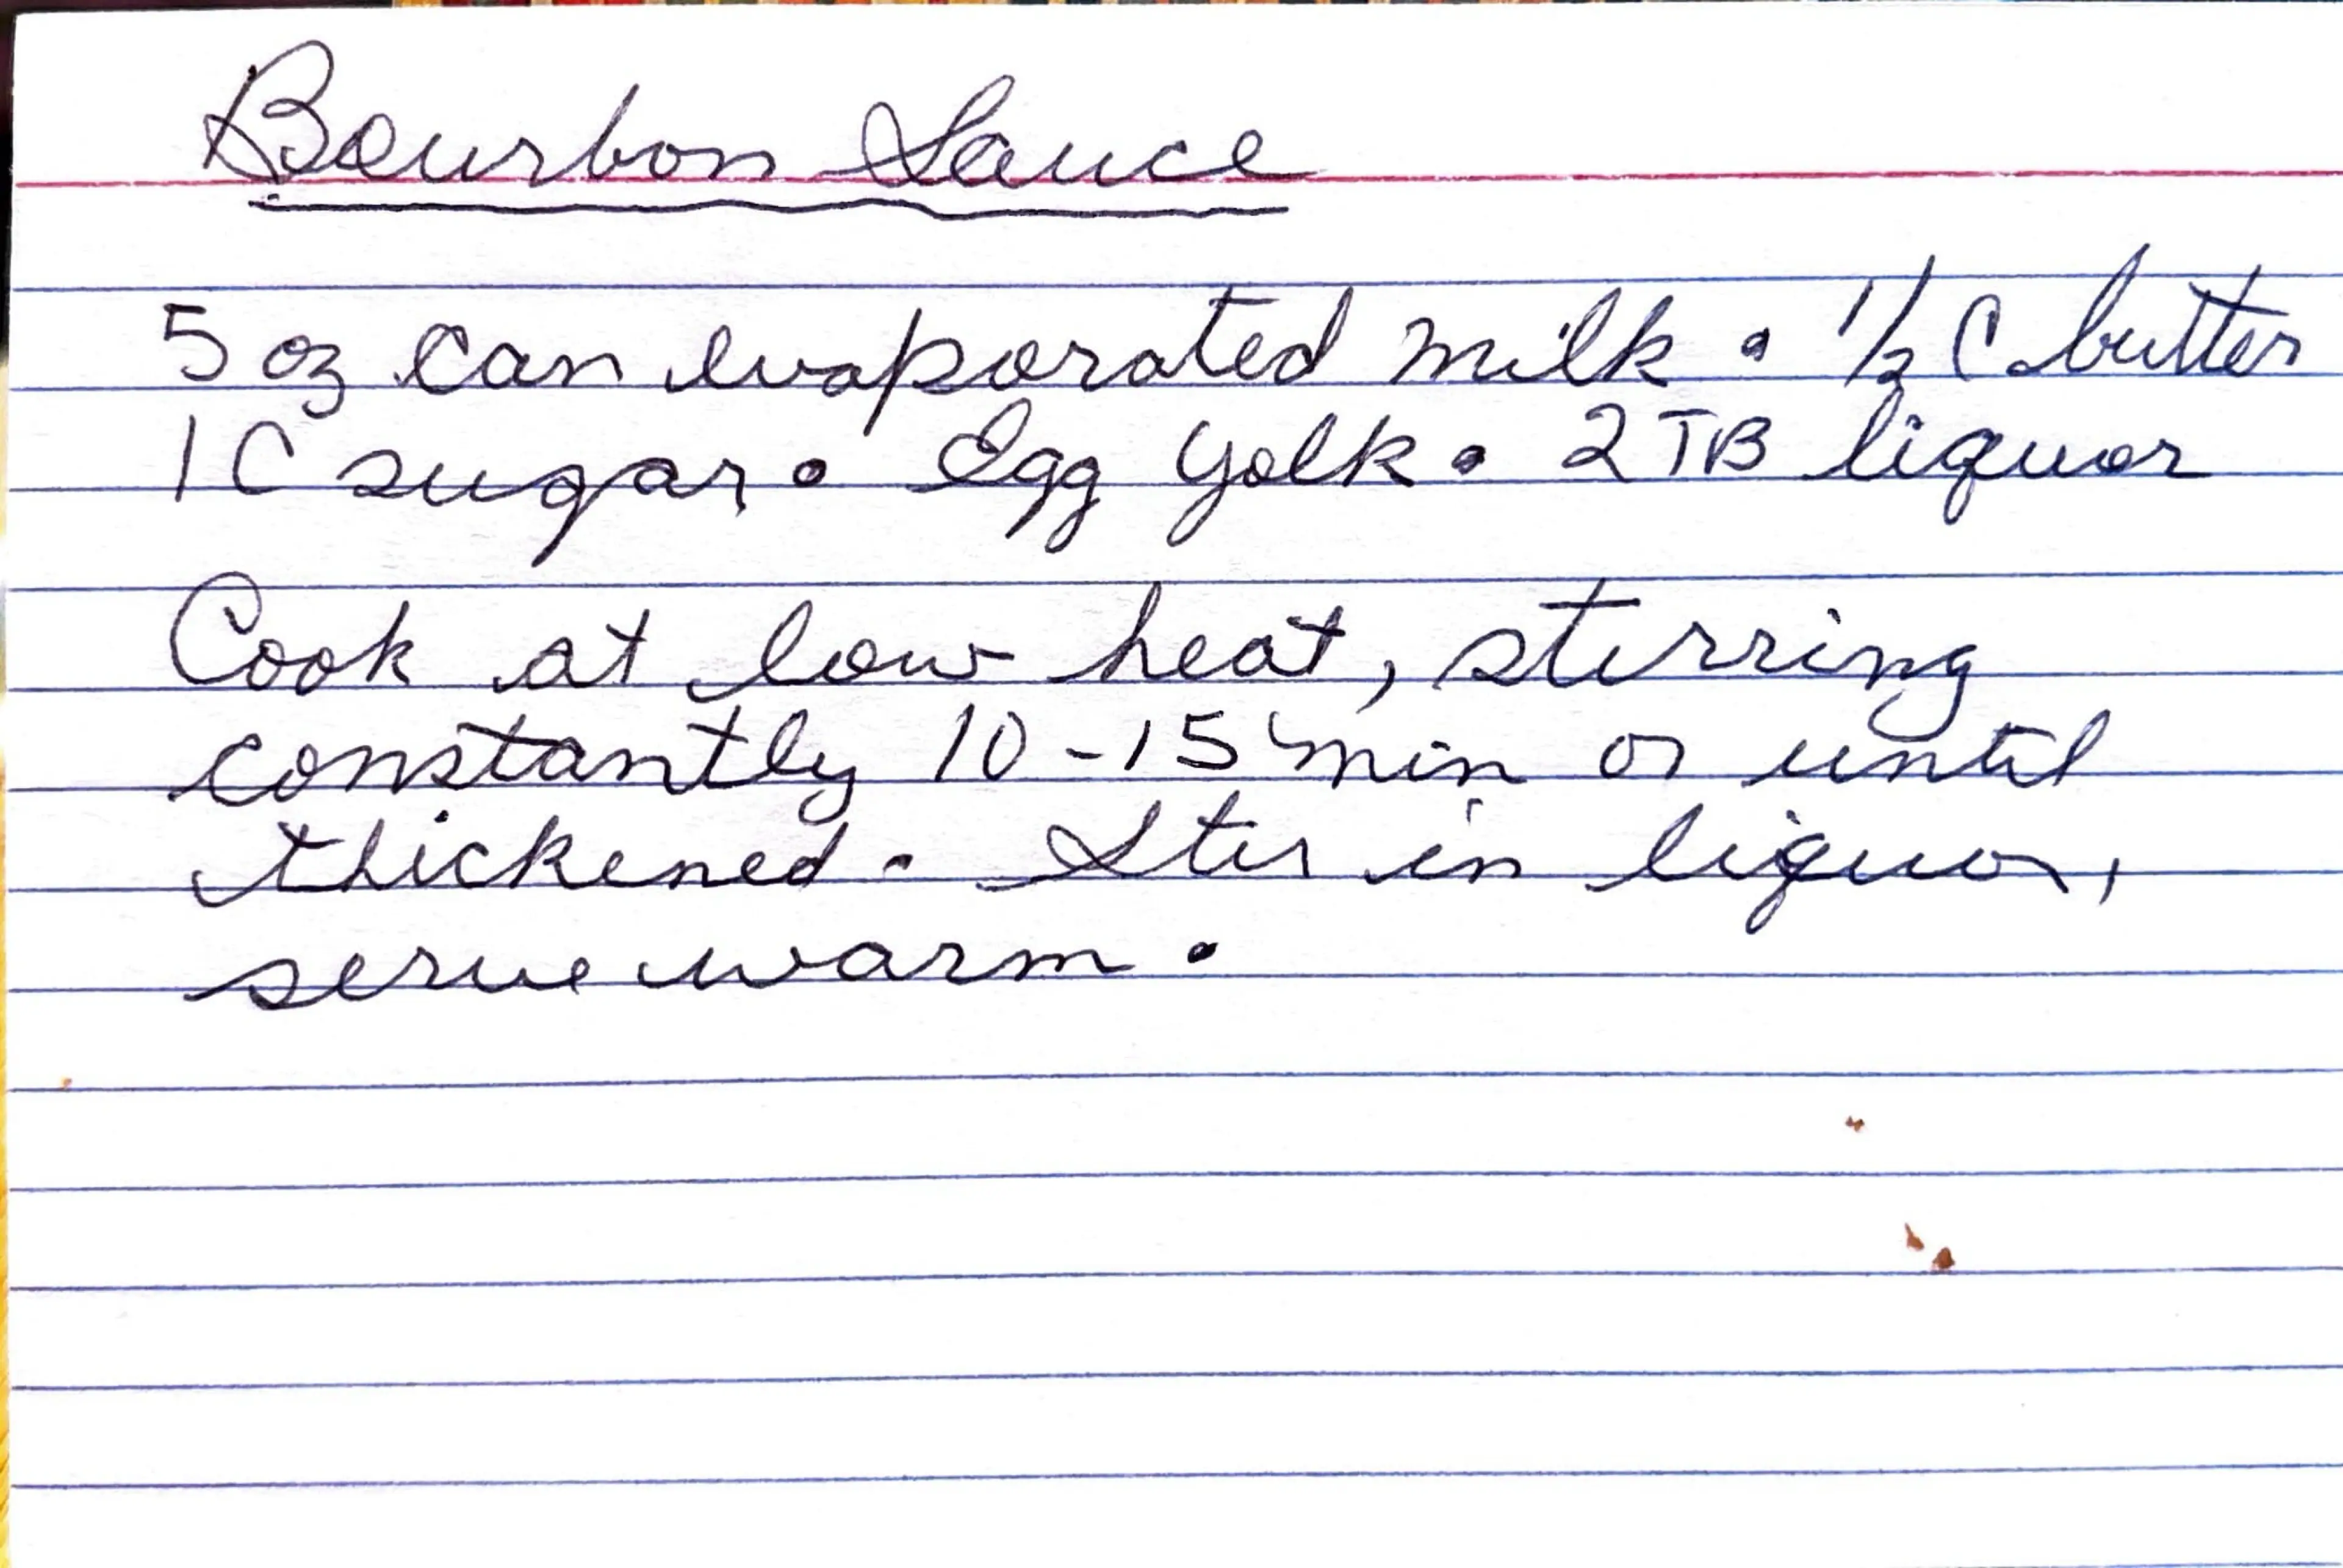 Bourbon Sauce
5 oz can evaporated milk • 1/2 C butter
1 C sugar • Egg yolk • 2 TB liquor
Cook at low heat, stirring
constantly 10-15 min or until
thickened. Stir in liquor,
serve warm.